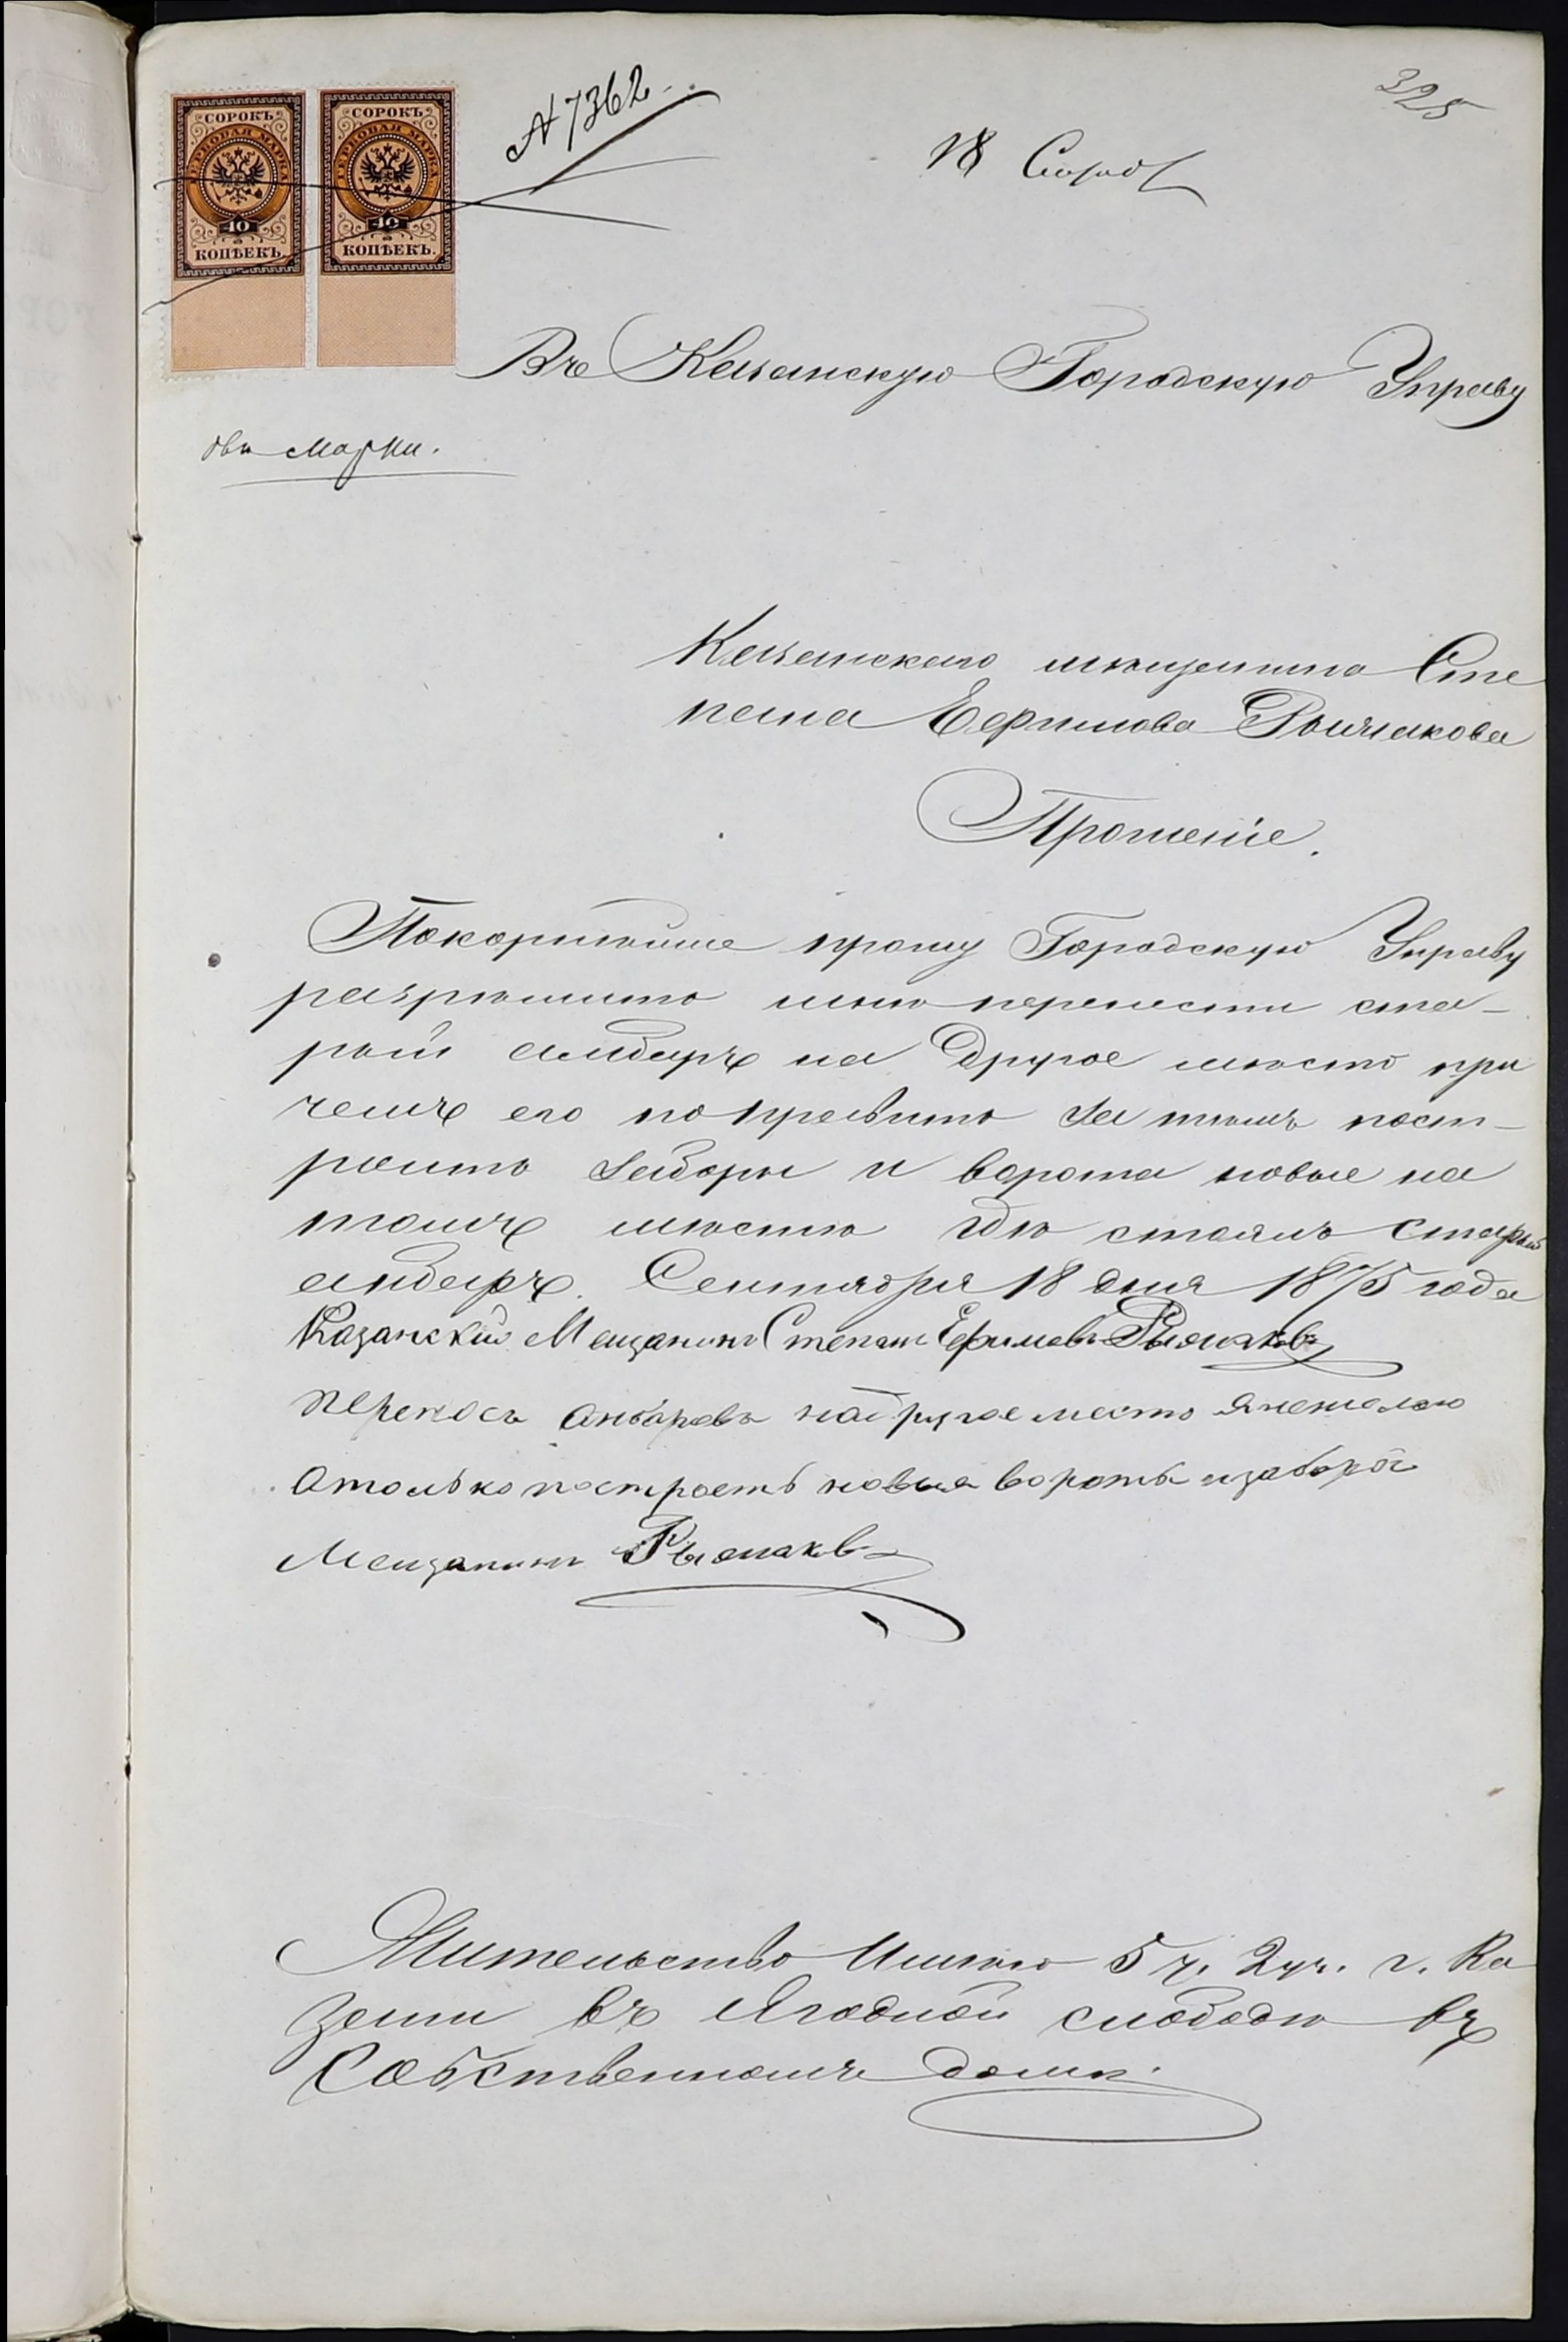 325
№ 7362
18 Сентяб
СОРОКЪ
ГЕРБОВАЯ МАРКА
40
КОПѢЕКЪ.
СОРОКЪ
ГЕРБОВАЯ МАРКА
40
КОПѢЕКЪ.
Въ Казанскую Городскую Управу
двѣ марки.
Казанскаго мѣщанина Сте
пана Ефимова
Прошеніе.
Покорнѣйше прошу Городскую Управу
разрѣшить мнѣ перенести ста-
рый анбаръ на другое мѣсто при
чемъ его поправить за тѣмъ пост-
роить заборы и ворота новые на
томъ мѣстѣ гдѣ стоялъ старый
анбаръ. Сентября 18 дня 1875 года
Казанскій Мещанинъ Степанъ Ефимовъ
переносъ анбаровъ на другое место я нежелаю
а только построеть новыя вороты и заборы
Мещанинъ
Жительство Имѣю 5 ч. 2 уч. г. Ка
зани въ Ягодной слободѣ въ
Собственномъ домѣ.